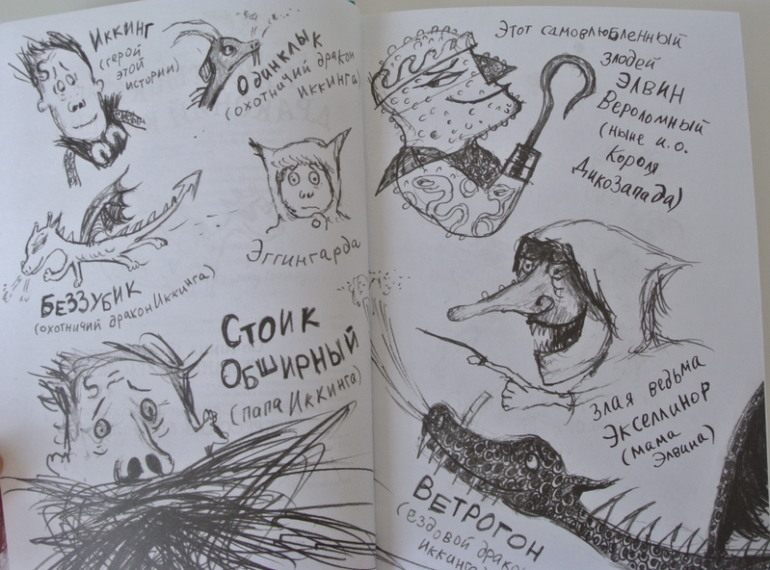 Иккинг
(герой
этой
истории)
Одинклык
(охотничий дракон
Иккинга)
Эггингарда
Беззубик
(охотничий дракон Иккинга)
Стоик
Обширный
(папа Иккинга)
Этот самовлюбленный
злодей
Элвин
Вероломный
(ныне и.о.
Короля
ДикоЗапада)
злая ведьма
Экселлинор
(мама
Элвина)
Ветрогон
(ездовой